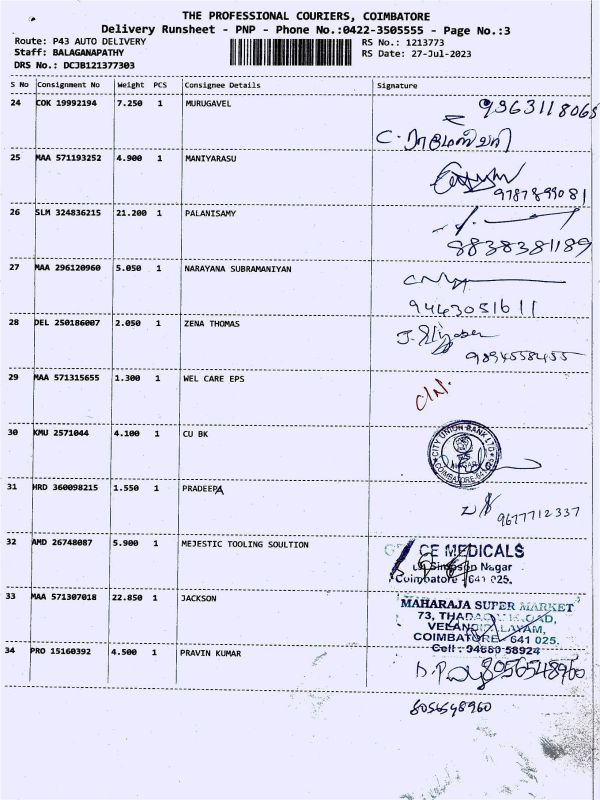 THE PROFESSIONAL COURIERS, COIMBATORE
Delivery Runsheet - PNP - Phone No.:0422-3505555 - Page No.:3
Route: P43 AUTO DELIVERY
RS No.: 1213773
Staff: BALAGANAPATHY
RS Date: 27-Jul-2023
DRS No.: DCJB121377303
S No Consignment No Weight PCS Consignee Details Signature
24 COK 19992194 7.250 1 MURUGAVEL
25 MAA 571193252 4.900 1 MANIYARASU
9787899081
26 SLM 324836215 21.200 1 PALANISAMY
8838381189
27 MAA 296120960 5.050 1 NARAYANA SUBRAMANIYAN
9443051611
28 DEL 250186007 2.050 1 ZENA THOMAS
9894558455
29 MAA 571315655 1.300 1 WEL CARE EPS
30 KMU 2571044 4.100 1 CU BK
CITY UNION BANK LTD
COIMBATORE-641
31 HRD 360098215 1.550 1 PRADEEPA
9677712337
32 AMD 26748087 5.900 1 MEJESTIC TOOLING SOULTION
CE MEDICALS
Simpson Nagar
Coimbatore - 641 025.
33 MAA 571307018 22.850 1 JACKSON
MAHARAJA SUPER MARKET
73,
COIMBATORE - 641 025.
Cell: 94880 58924
34 PRO 15160392 4.500 1 PRAVIN KUMAR
8056548960
8056548960